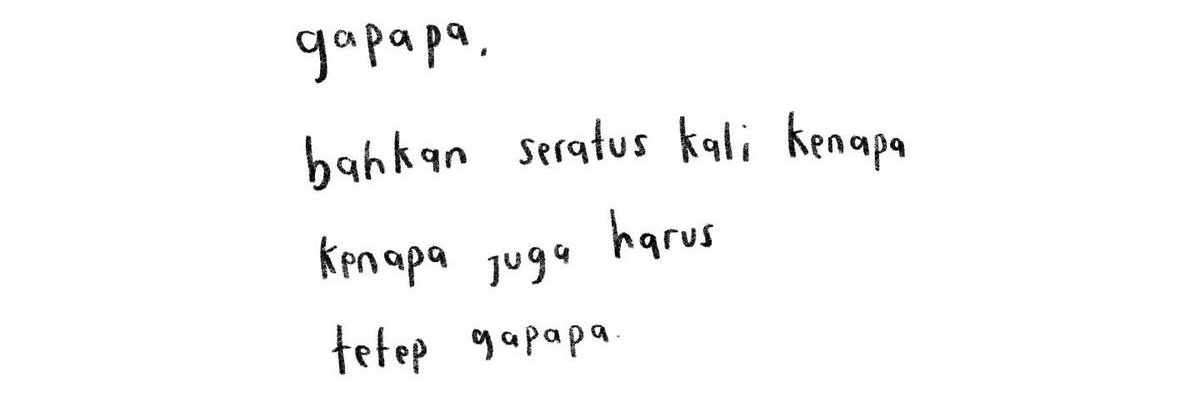 gapapa.
bahkan seratus kali kenapa
kenapa juga harus
tetep gapapa.